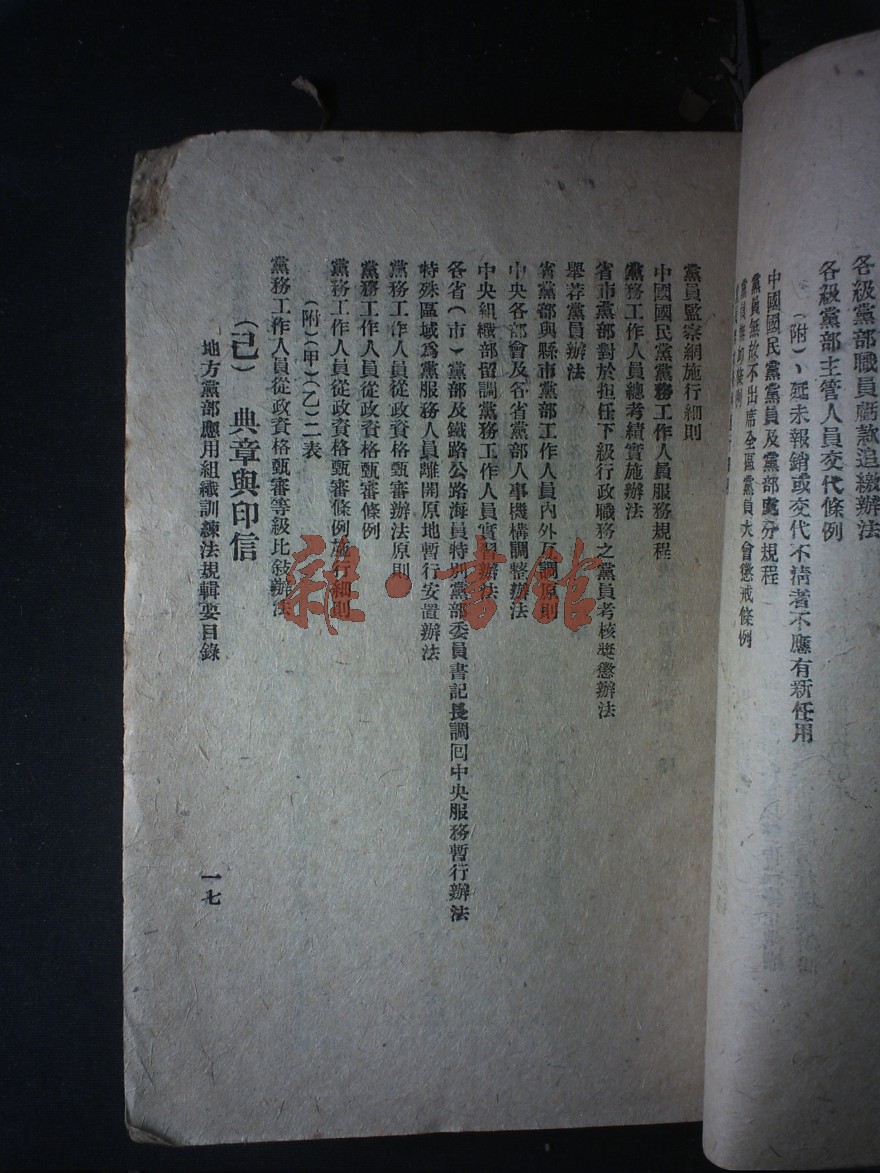 各級黨部職員虧款追繳辦法
各級黨部主管人員交代條例
（附）、延未報銷或交代不清者不應有新任用
中國國民黨黨員及黨部處分規程
黨員無故不出席全區黨員大會懲戒條例
黨員監察網施行細則
中國國民黨黨務工作人員服務規程
黨務工作人員總考績實施辦法
省市黨部對於担任下級行政職務之黨員考核獎懲辦法
舉荐黨員辦法
省黨部與縣市黨部工作人員內外互調原則
中央各部會及各省黨部人事機構調整辦法
中央組織部留調黨務工作人員實習辦法
各省（市）黨部及鐵路公路海員特別黨部委員書記長調回中央服務暫行辦法
特殊區域爲黨服務人員離開原地暫行安置辦法
黨務工作人員從政資格甄審辦法原則
黨務工作人員從政資格甄審條例
黨務工作人員從政資格甄審條例施行細則
（附）（甲）（乙）二表
黨務工作人員從政資格甄審等級比敍辦法
（己） 典章與印信
地方黨部應用組織訓練法規輯要目錄
一七
雜·書館